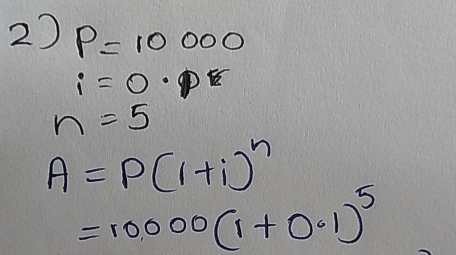 2) P = 10 000
i = 0.
n = 5
A = P(1+i)^n
= 10,000(1+0.1)^5